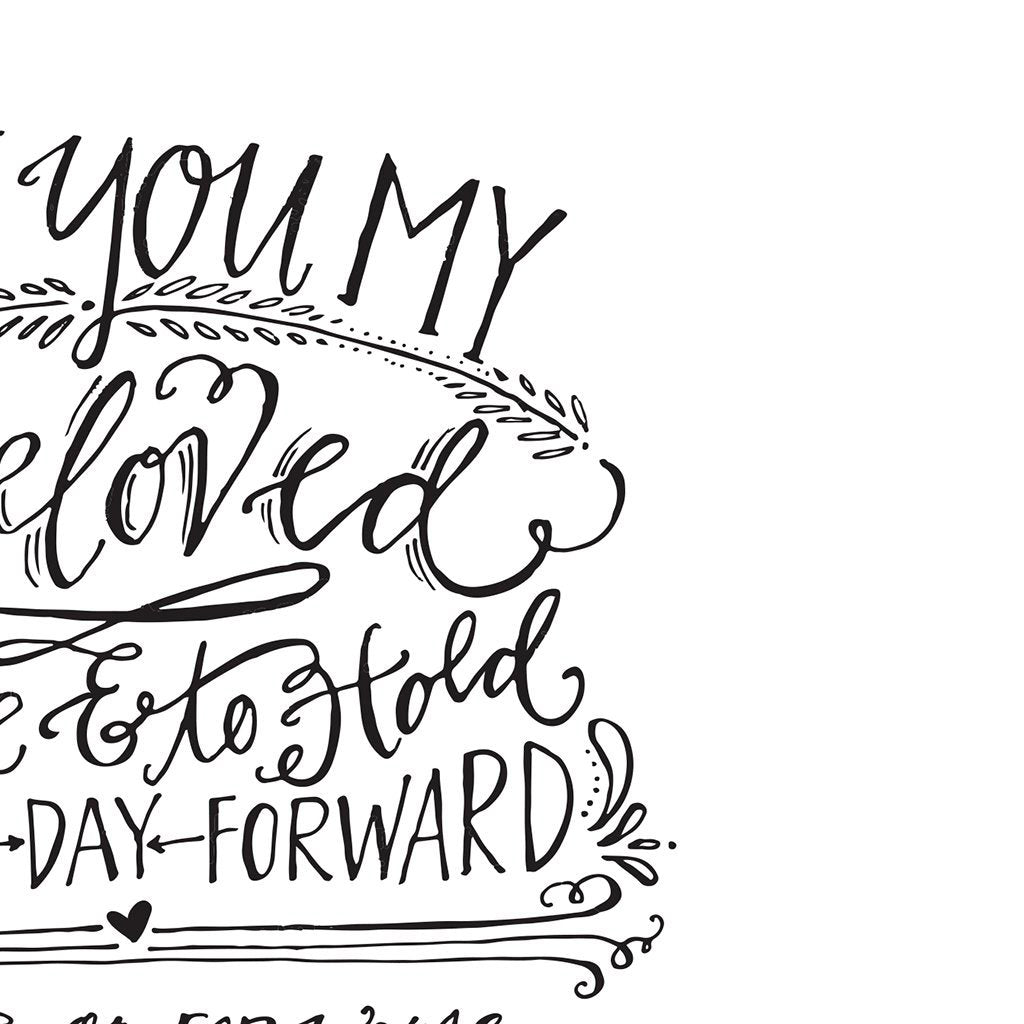 YOU MY
eloved
e & to Hold
DAY FORWARD